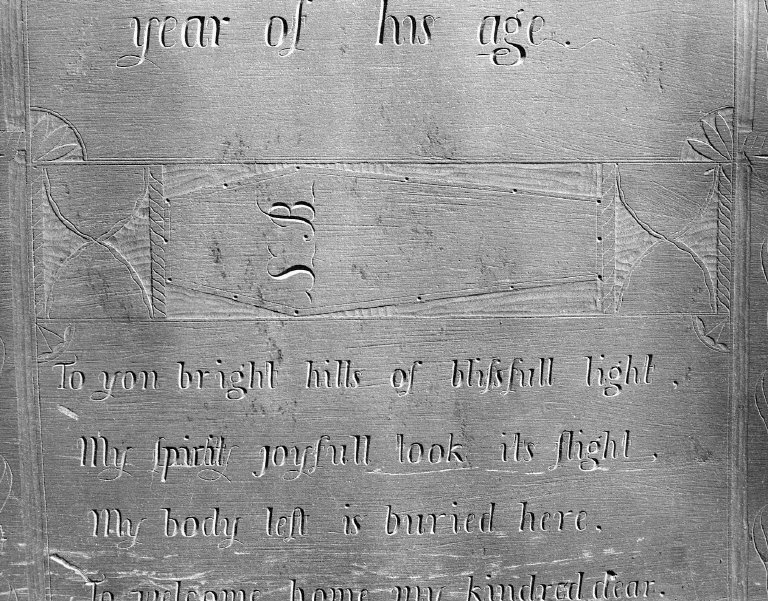 year of his age.
S. B
To yon bright hills of bliſsfull light,
My ſpirit joyfull took its flight,
My body left is buried here.
To welcome home my kindred dear.